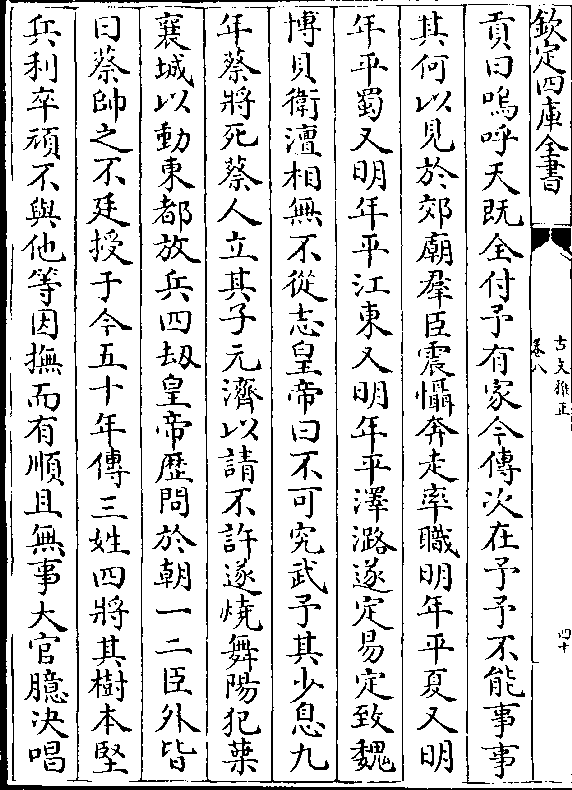 欽定四庫全書
古文雅正
卷八
四十
貢曰嗚呼天既全付予有家今傳次在予予不能事事
其何以見於郊廟羣臣震懾奔走率職明年平夏又明
年平蜀又明年平江東又明年平澤潞遂定易定致魏
博貝衛澶相無不從志皇帝曰不可究武予其少息九
年蔡將死蔡人立其子元濟以請不許遂燒舞陽犯葉
襄城以動東都放兵四刼皇帝歷問於朝一二臣外皆
曰蔡帥之不廷授于今五十年傳三姓四將其樹本堅
兵利卒頑不與他等因撫而有順且無事大官臆決唱